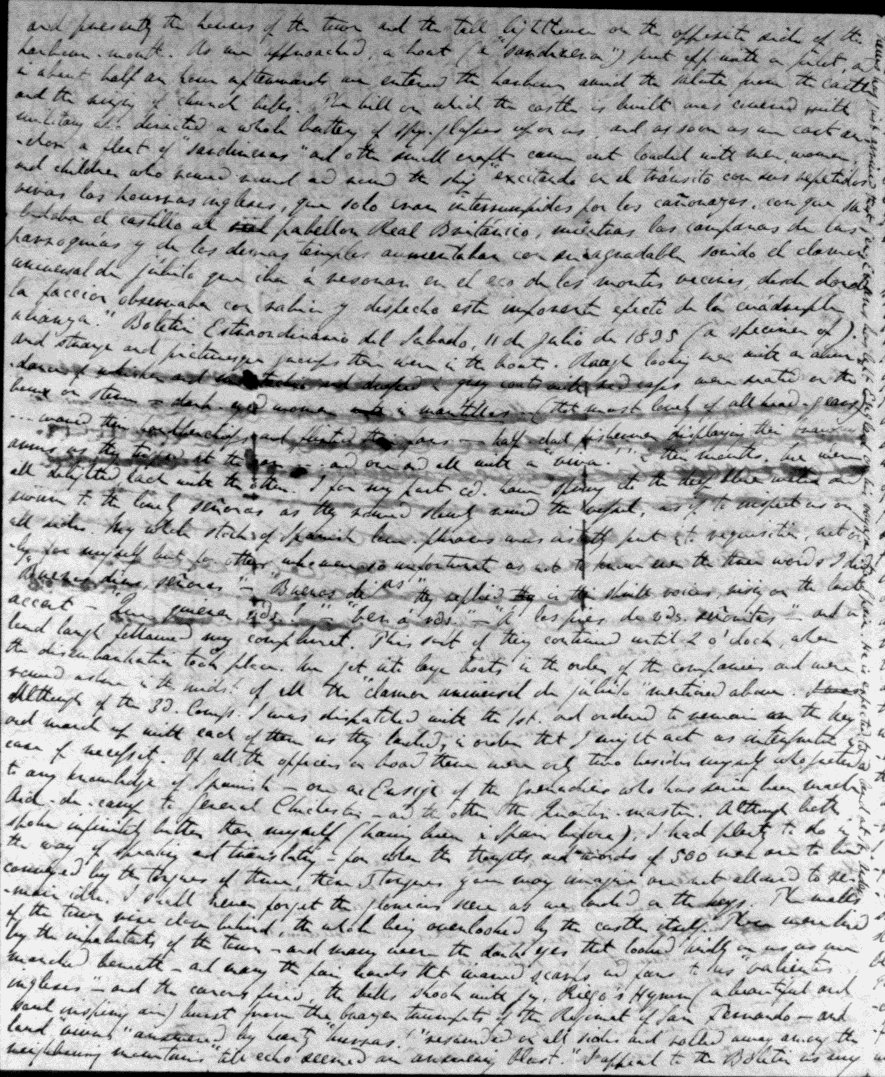 and presently the houses of the town and the tall lighthouse on the opposite side of the
harbour-mouth. As we approached, a boat (a "sardinera") put off with a pilot, and
in about half an hour afterwards we entered the harbour amid the salute from the castle
and the ringing of church bells. The hill on which the castle is built was covered with
military who directed a whole battery of spy-glasses upon us and as soon as we cast an-
-chor a fleet of "sardineras" and other small craft came out loaded with men, women,
and children who rowed round and round the ship "excitando en el tránsito con sus repetidos
vivas los hourras ingleses, que solo eran interrumpidos por los cañonazos, con que sa-
ludaba el castillo al pabellon Real Británico, mientras las campanas de las
parroquias y de los demas templos aumentaban con su agradable sonido el clamor
universal de júbilo que iban á resonar en el eco de los montes vecinos, desde donde
la faccion observaba con rabia y despecho este imponente efecto de la cuádruple
alianza." Boletin Estraordinario del Sabado, 11 de Julio de 1835 (a specimen of).
and strange and picturesque groups there were in the boats. Rough looking men with an abun-
-dance of whisker and mustachio and draped in grey coats with red caps were seated on the
bows or stern - dark-eyed women with mantillas - (that most lovely of all head-gears)
... waved their handkerchiefs and flirted their fans - half clad fishermen displaying their
arms as they tugged at the oars ... and one and all with a "viva" in their mouths. We were
all delighted each with the other. I for my part cd. have sprung into the deep blue water and
swam to the lovely señoras as they rowed slowly round the vessel, as if to inspect us on
all sides. My whole stock of Spanish phrases was instantly put into requisition, not on-
-ly for myself but for others who were so importunate as not to leave me the three words I had
"Buenos dias, señoras" - "Buenos dias!" they replied in the shrill voices, rising on the last
accent - "Que quieren vds.?" - "ver á vds." - "A los pies de vds. señoritas" - and a
loud laugh followed my compliment. This sort of thing continued until 2 o'clock, when
the disembarkation took place. We got into large boats in the order of the companies and were
rowed ashore in the midst of all the "clamor universal de júbilo" mentioned above.
Although of the 3d. Comp. I was dispatched with the 1st. and ordered to remain on the key
and march up with each of them as they landed, in order that I might act as interpreter in
case of necessity. Of all the officers on board there were only two besides myself who pretend
to any knowledge of Spanish - one an Ensign of the Grenadiers who has since been made
Aid-de-camp to General Chichester - and the other the Quarter-master. Although both
spoke infinitely better than myself (having been in Spain before), I had plenty to do in
the way of speaking and translating - for when the thoughts and words of 500 men are to be
conveyed by the tongues of three, those 3 tongues you may imagine are not allowed to re-
-main idle. I shall never forget the glorious scene as we landed on the keys. The walls
of the town rise close behind, the whole being overlooked by the castle itself. These were lined
by the inhabitants of the town - and many were the dark eyes that looked kindly on us as we
marched beneath - and many the fair hands that waved scarfs and fans to "los valientes
ingleses" - and the cannons fired, the bells shook with joy, Riego's Hymn (a beautiful and
soul inspiring air) burst from the brazen trumpets of the Regiment of San Fernando - and
loud vivas "answered by hearty "hurras!" resounded on all sides and rolled away among the
neighbouring mountains "till echo seemed an answering blast." I appeal to the Boletin as my